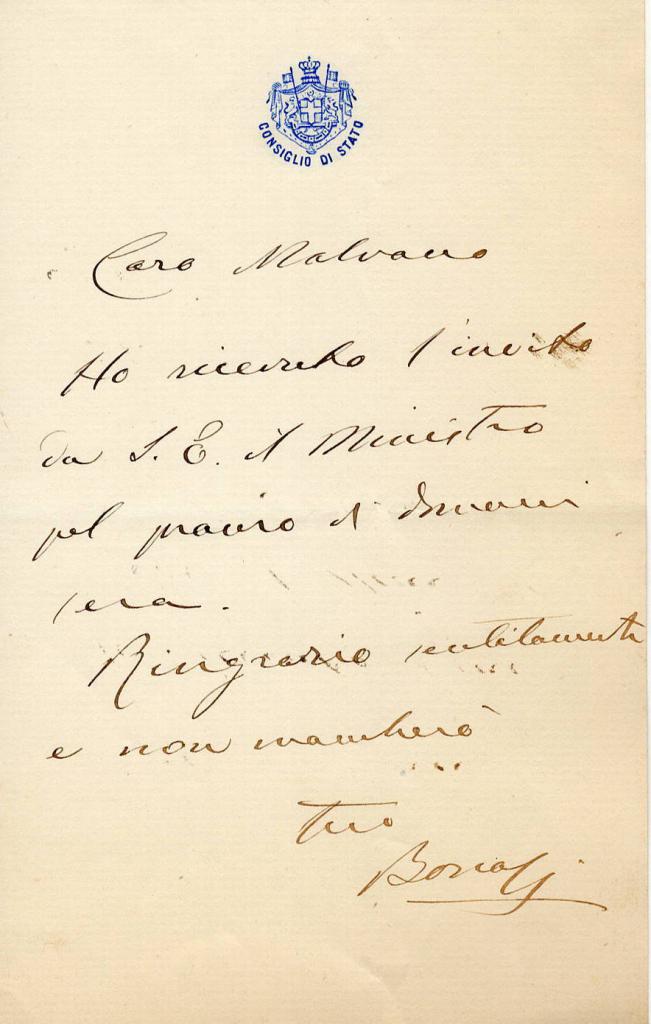 CONSIGLIO DI STATO
Caro Malvano
Ho ricevuto l'invito
da S. E. il Ministro
pel pranzo di domani
sera.
Ringrazio sentitamente
e non mancherò
tuo
Bonasi